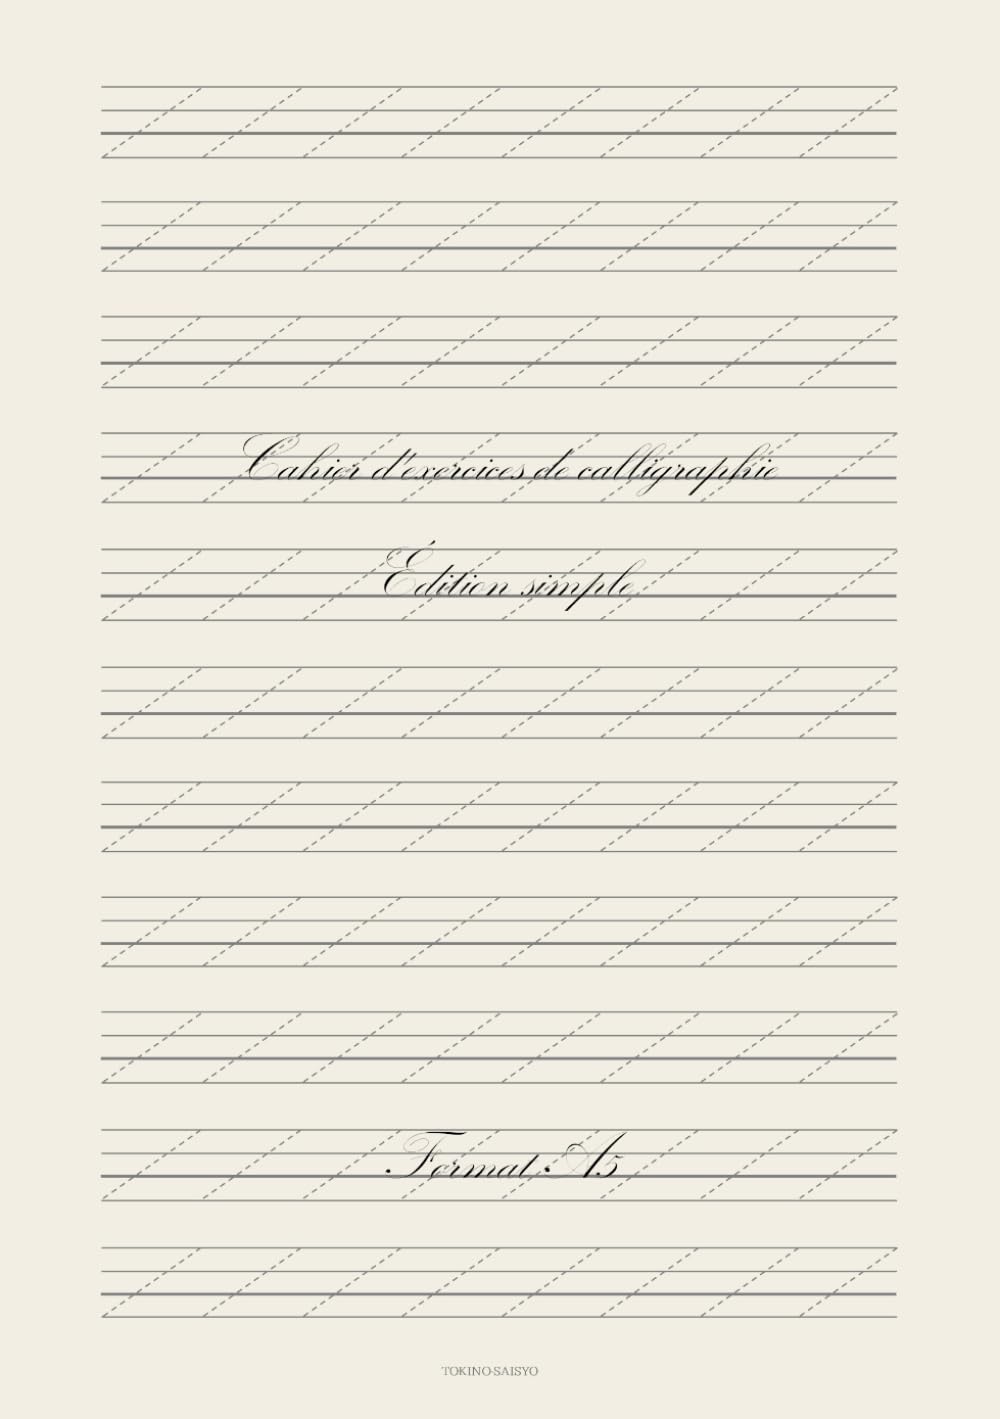 Cahier d'exercices de calligraphie
Édition simple
Format A5
TOKINO-SAISYO